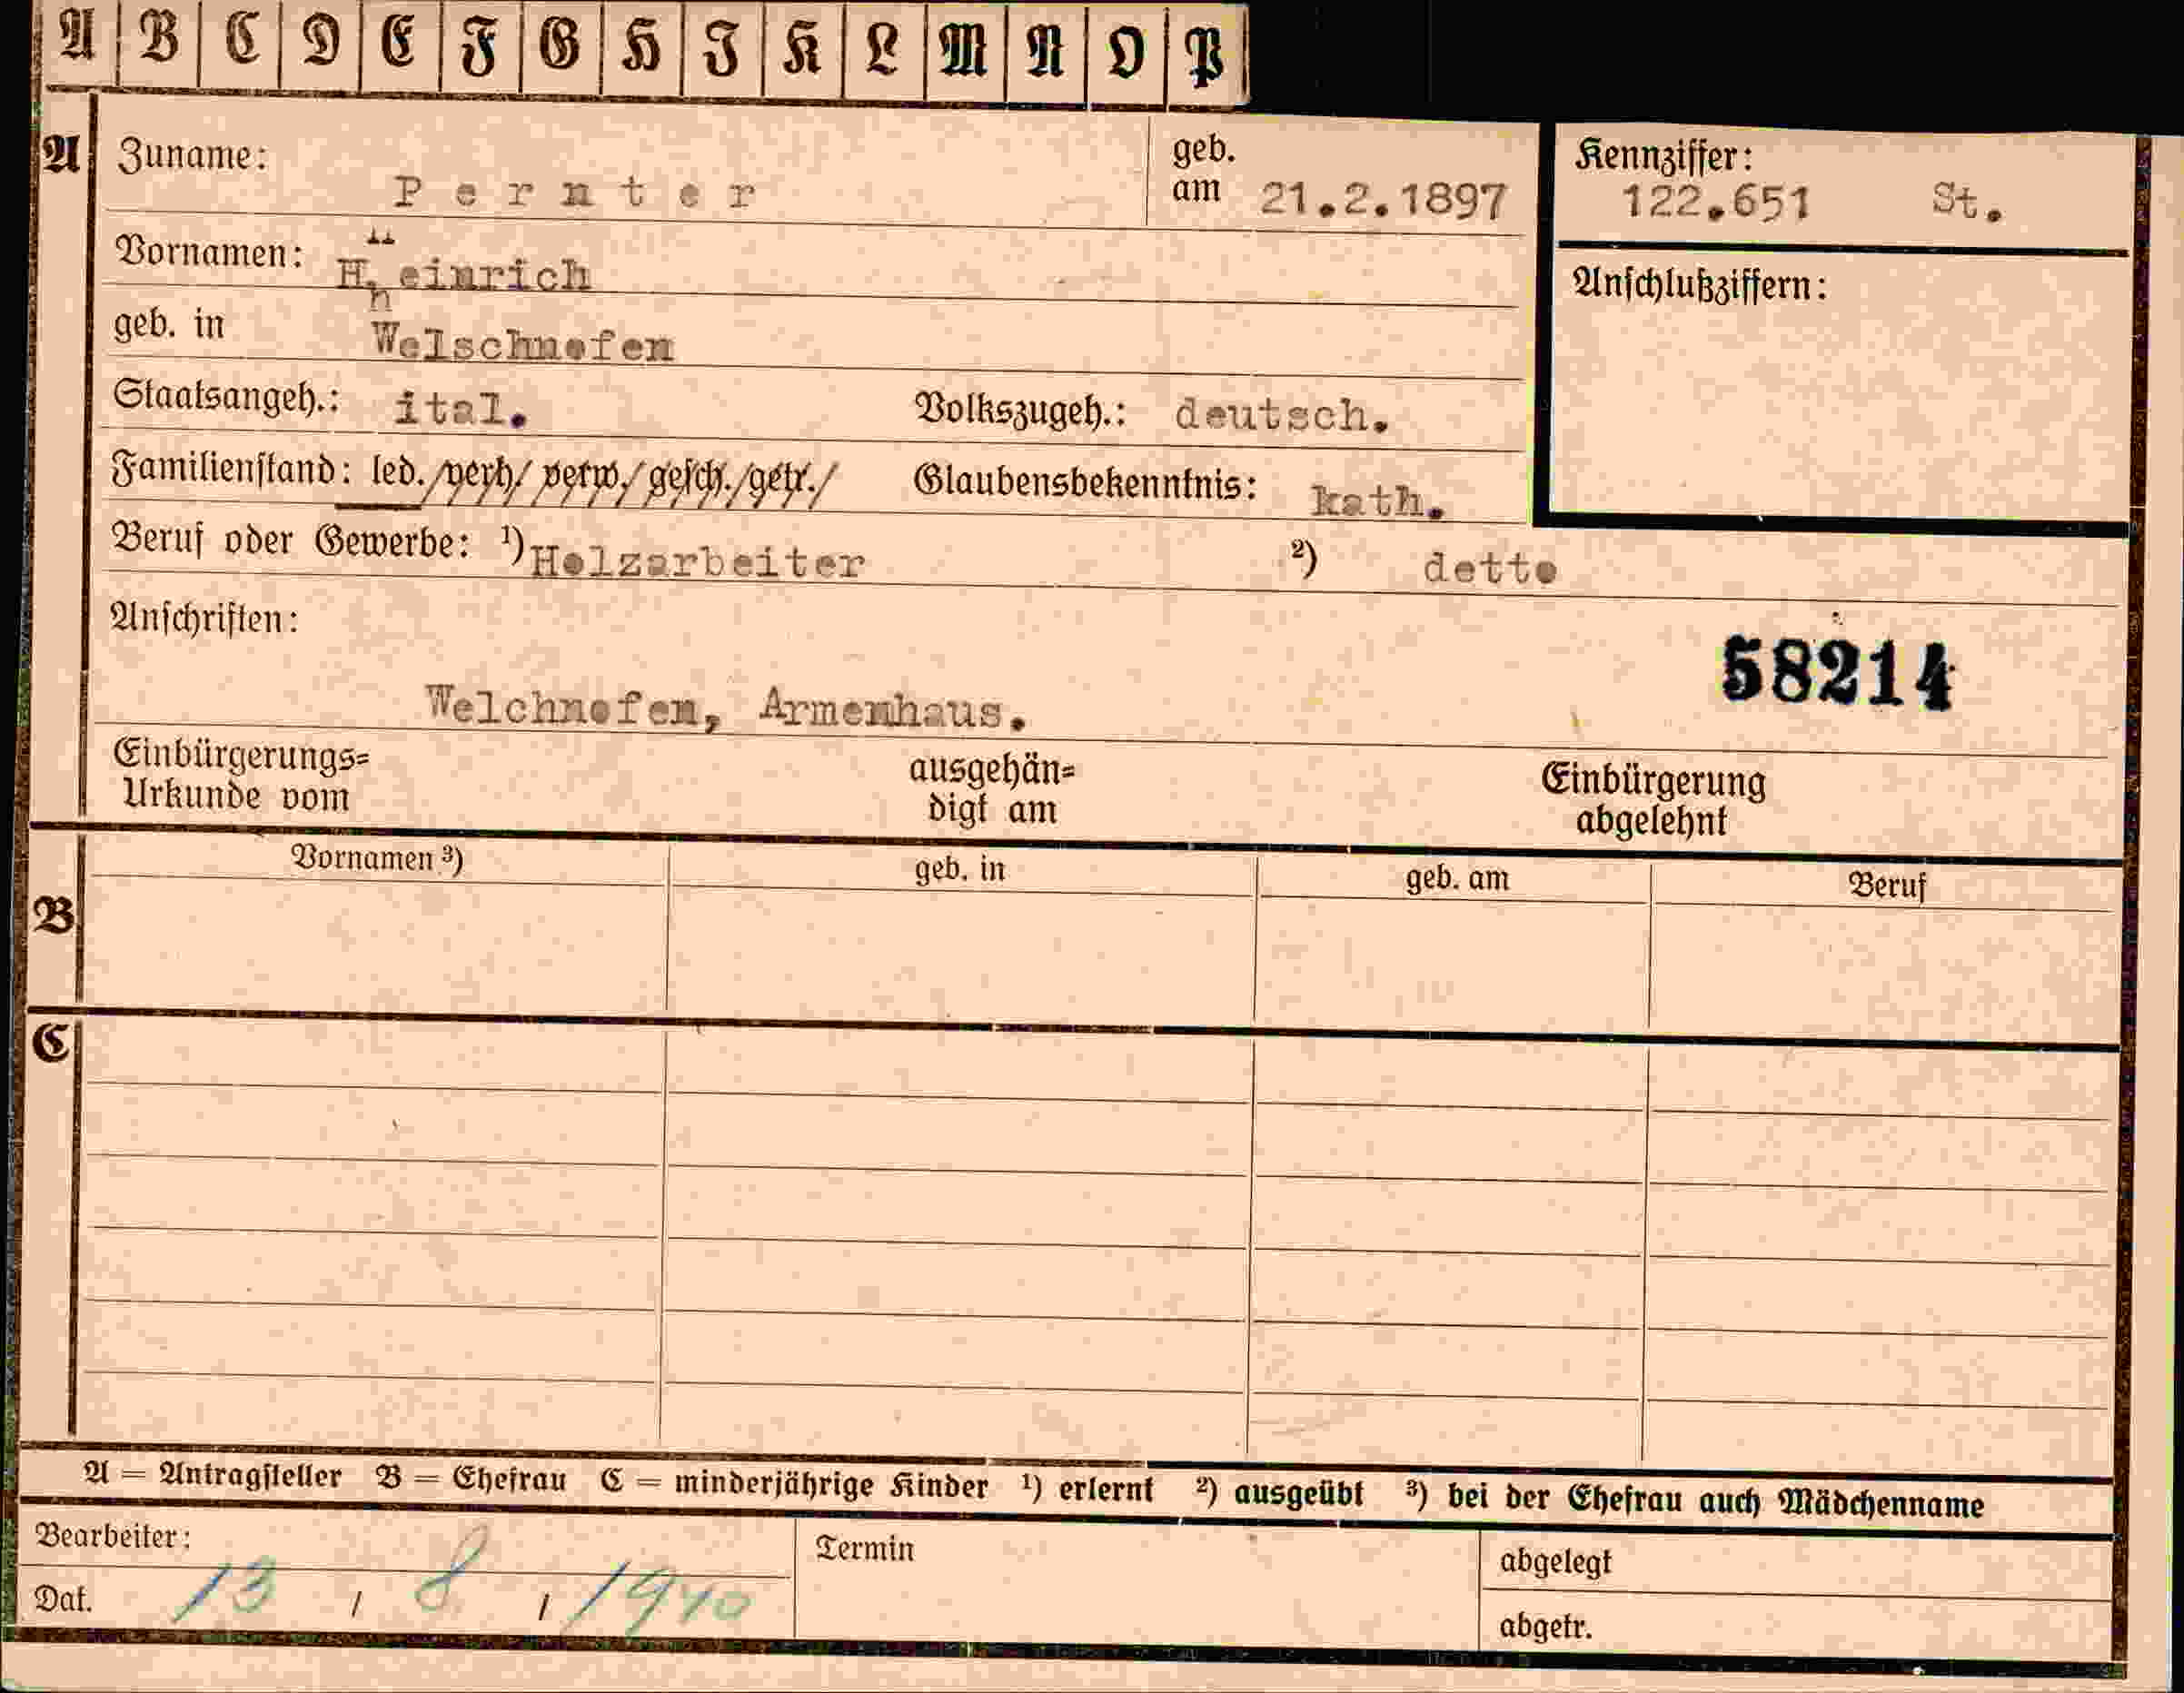 A B C D E F G H I K L M N O P
A Zuname: Pernter geb. am 21.2.1897 Kennziffer: 122.651 St.
Vornamen: Heinrich Anschlußziffern:
geb. in Welschnofen
Staatsangeh.: ital. Volkszugeh.: deutsch.
Familienstand: led./verh/ verw./gesch./getr./ Glaubensbekenntnis: kath.
Beruf oder Gewerbe: ¹) Holzarbeiter ²) detto
Anschriften:
58214
Welchnofen, Armenhaus.
Einbürgerungs= ausgehän= Einbürgerung
Urkunde vom digt am abgelehnt
B Vornamen ³) geb. in geb. am Beruf
C
A = Antragsteller B = Ehefrau C = minderjährige Kinder ¹) erlernt ²) ausgeübt ³) bei der Ehefrau auch Mädchenname
Bearbeiter: Termin abgelegt
Dat. 13 / 8 / 1940 abgetr.